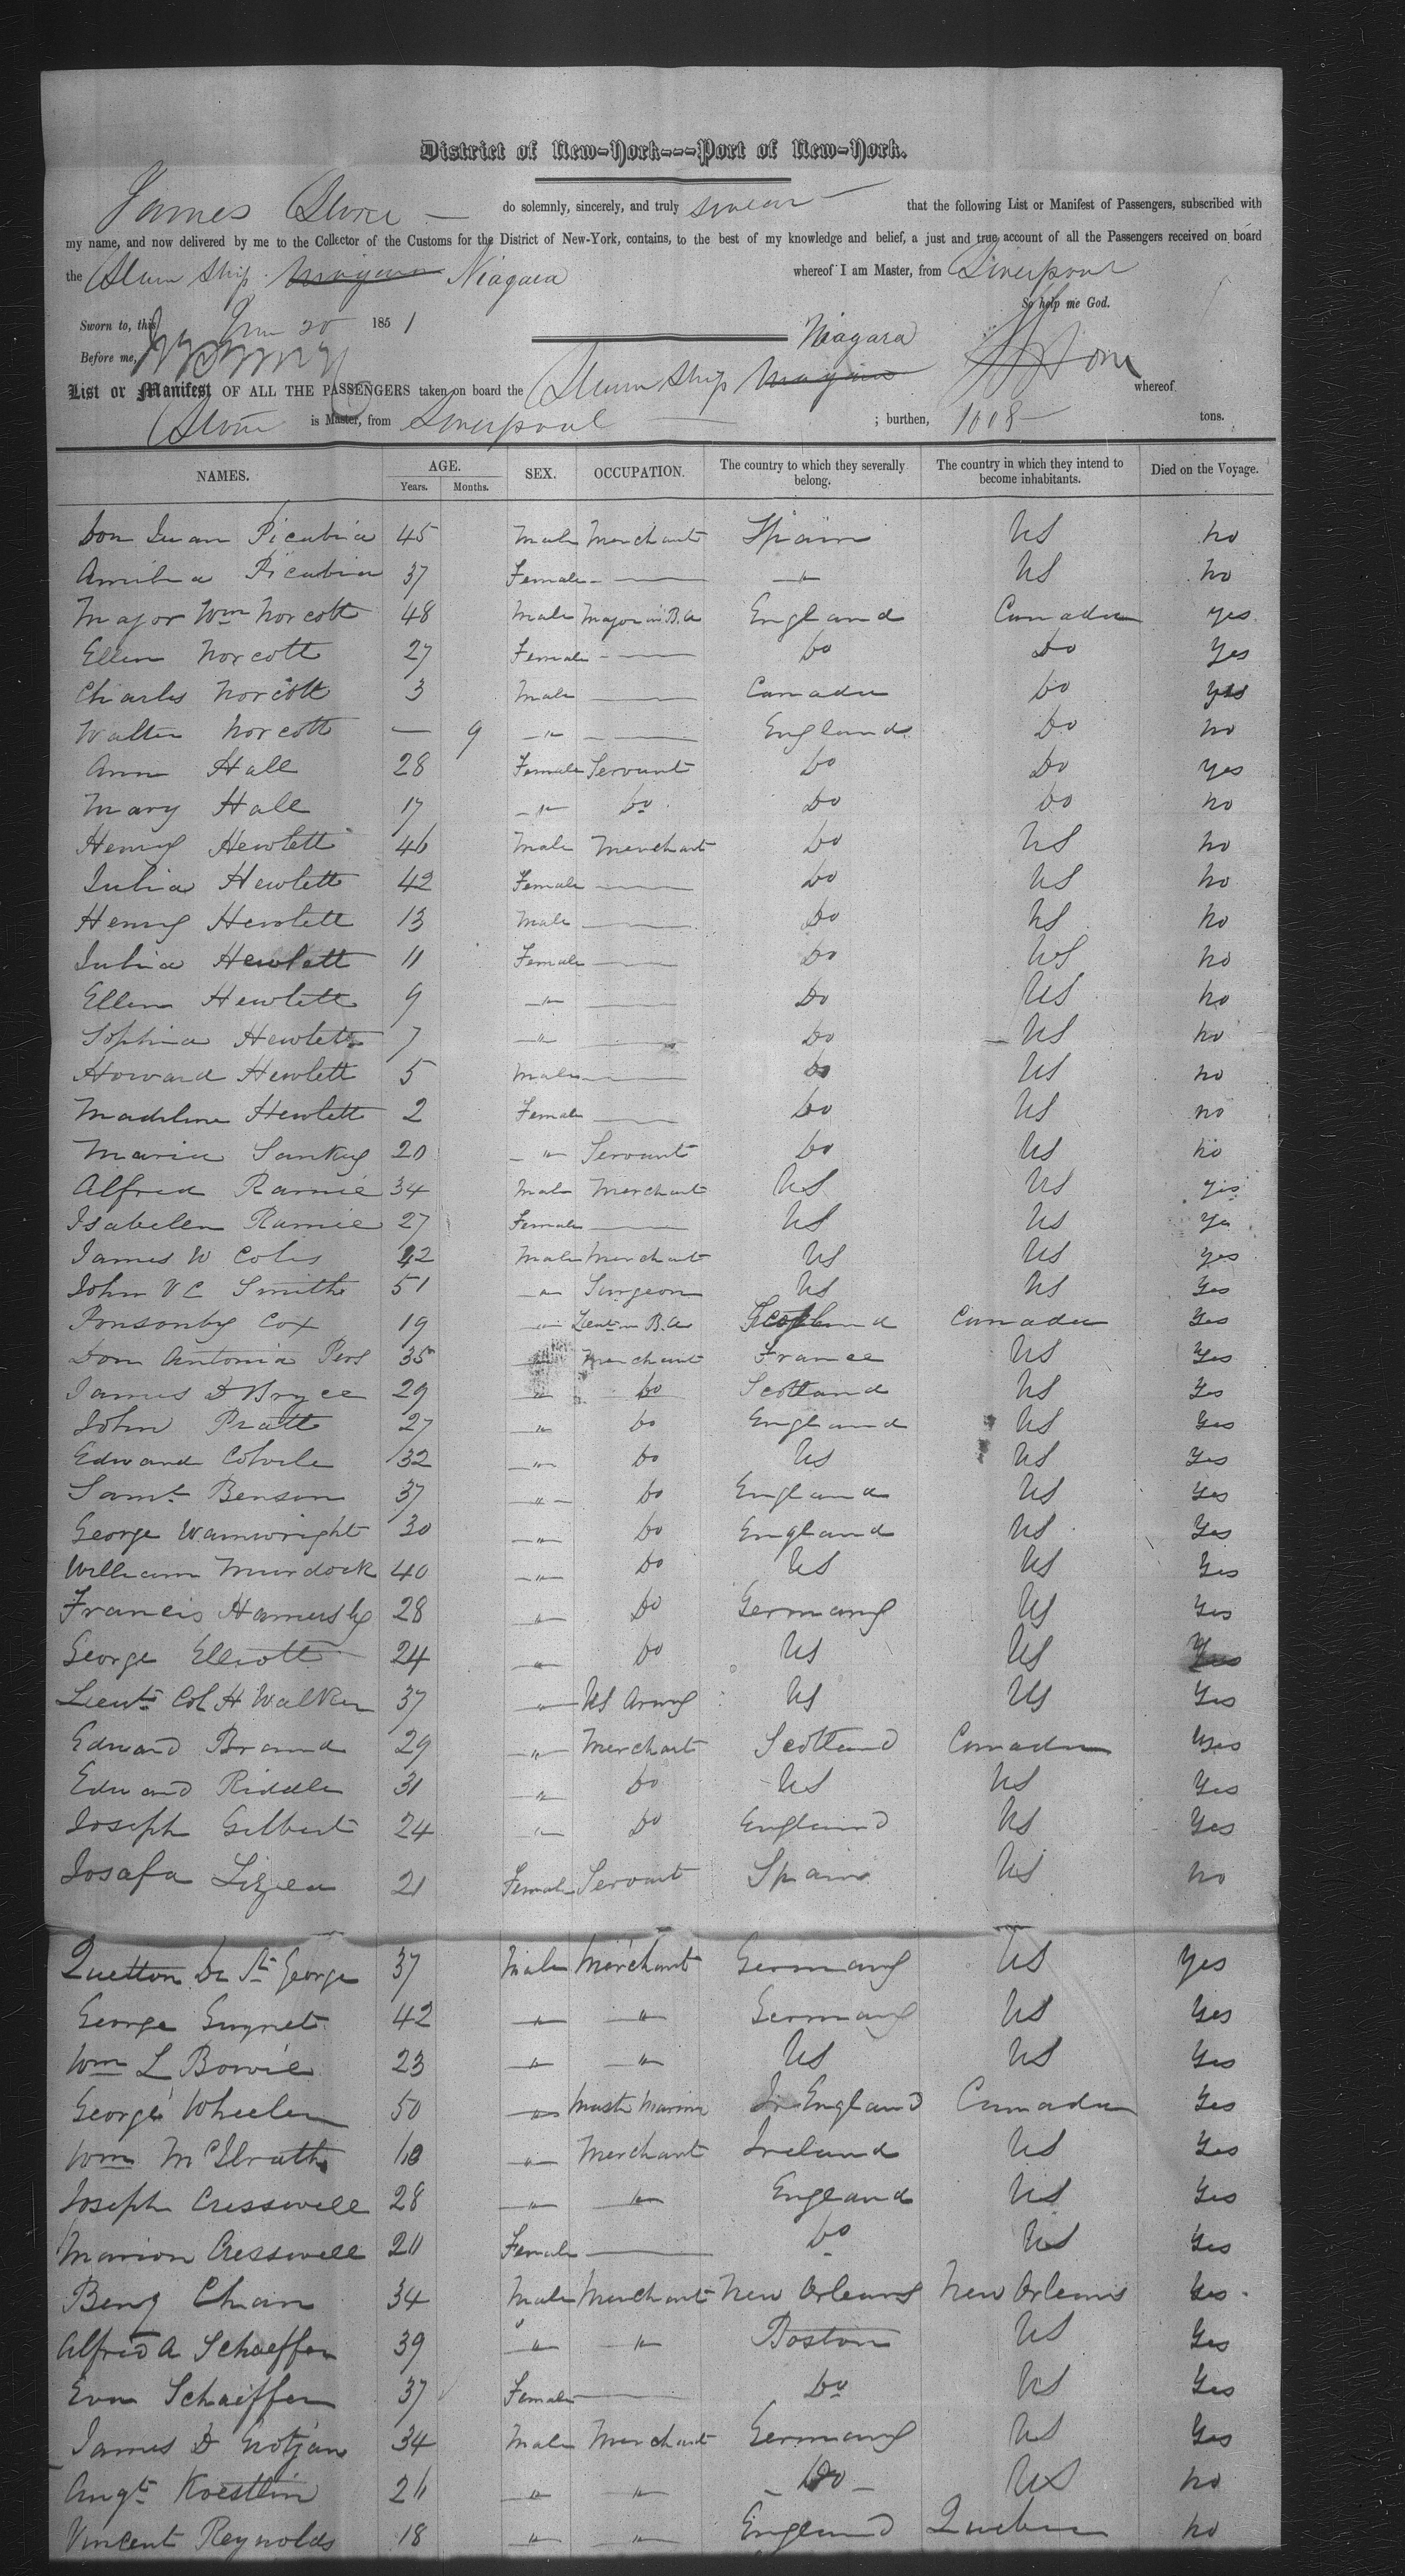 District of New-York---Port of New-York.
James Stone — do solemnly, sincerely, and truly swear — that the following List or Manifest of Passengers, subscribed with
my name, and now delivered by me to the Collector of the Customs for the District of New-York, contains, to the best of my knowledge and belief, a just and true account of all the Passengers received on board
the Steam Ship Niagara whereof I am Master, from Liverpool
So help me God.
Sworn to, this 20 1851
Before me,
Niagara
List or Manifest OF ALL THE PASSENGERS taken on board the Steam Ship whereof
Stone is Master, from Liverpool — ; burthen, 1008 — tons.
NAMES. AGE. SEX. OCCUPATION. The country to which they severally belong. The country in which they intend to become inhabitants. Died on the Voyage.
Years. Months.
Don Juan Picabia 45 Male Merchant Spain US no
Amilia Picabia 37 Female — " US no
Major Wm Norcott 48 Male Major in B.A England Canada yes
Ellen Norcott 27 Female — Do Do Yes
Charles Norcott 3 Male — Canada Do yes
Walter Norcott — 9 " — England Do no
Ann Hall 28 Female Servant Do Do yes
Mary Hall 17 " Do Do Do no
Henry Hewlett 46 Male Merchant Do US no
Julia Hewlett 42 Female — Do US no
Henry Hewlett 13 Male — Do US no
Julia Hewlett 11 Female — Do US no
Ellen Hewlett 9 " — Do US no
Sophia Hewlett 7 " — Do US no
Howard Hewlett 5 Male — Do US no
Madeline Hewlett 2 Female — Do US no
Maria Sankey 20 " Servant Do US no
Alfred Ramie 34 Male Merchant US US yes
Isabelen Ramie 27 Female — US US Yes
James W Coles 42 Male Merchant US US yes
John V C Smith 51 " Surgeon US US Yes
Ponsonby Cox 19 " Lieut in B.A Scotland Canada Yes
Don Antonia Pers 35 " Merchant France US Yes
James D Bryce 29 " Do Scotland US Yes
John Pratt 27 " Do England US Yes
Edward Colvile 32 " Do US US Yes
Saml Benson 37 " Do England US Yes
George Wainwright 30 " Do England US Yes
William Murdock 40 " Do US US Yes
Francis Hamersly 28 " Do Germany US Yes
George Elliott 24 " Do US US Yes
Lieut Col H Walker 37 " US Army US US Yes
Edward Brand 29 " Merchant Scotland Canada Yes
Edward Riddle 31 " Do US US Yes
Joseph Gilbert 24 " Do England US Yes
Josafa 21 Female Servant Spain US no
Quetton De St George 37 Male Merchant Germany US Yes
George Guynet 42 " " Germany US Yes
Wm L Bowie 23 " " US US Yes
George Wheeler 50 " Mastr Marine England Canada Yes
Wm McIlrath " Merchant Ireland US Yes
Joseph Cresswell 28 " " England US Yes
Marion Cresswell 20 Female — Do US Yes
Benj Chan 34 Male Merchant New Orleans New Orleans Yes
Alfred A Schaeffer 39 " " Boston US Yes
Eva Schaeffer 37 Female — Do US Yes
James D Grotjan 34 Male Merchant Germany US Yes
Augt Koestlin 26 " " Do US no
Vincent Reynolds 18 " " England Quebec no